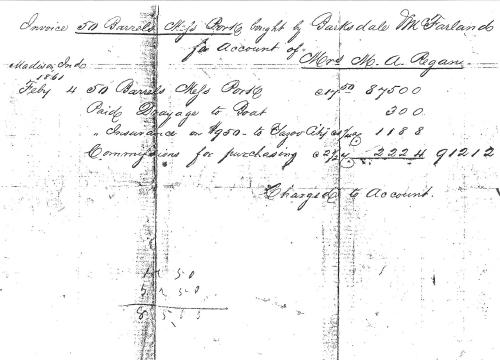 Invoice 50 Barrels Mess Pork bought by Barksdale McFarland
for Account of Mrs M. A. Regan
Madison Ind
1861
Feby 4 50 Barrels Mess Pork 17 50 87500
Paid Drayage to Boat 300
" Insurance on $950 - to Yazoo City 1188
Commissions for purchasing 2224 91212
Charged to Account